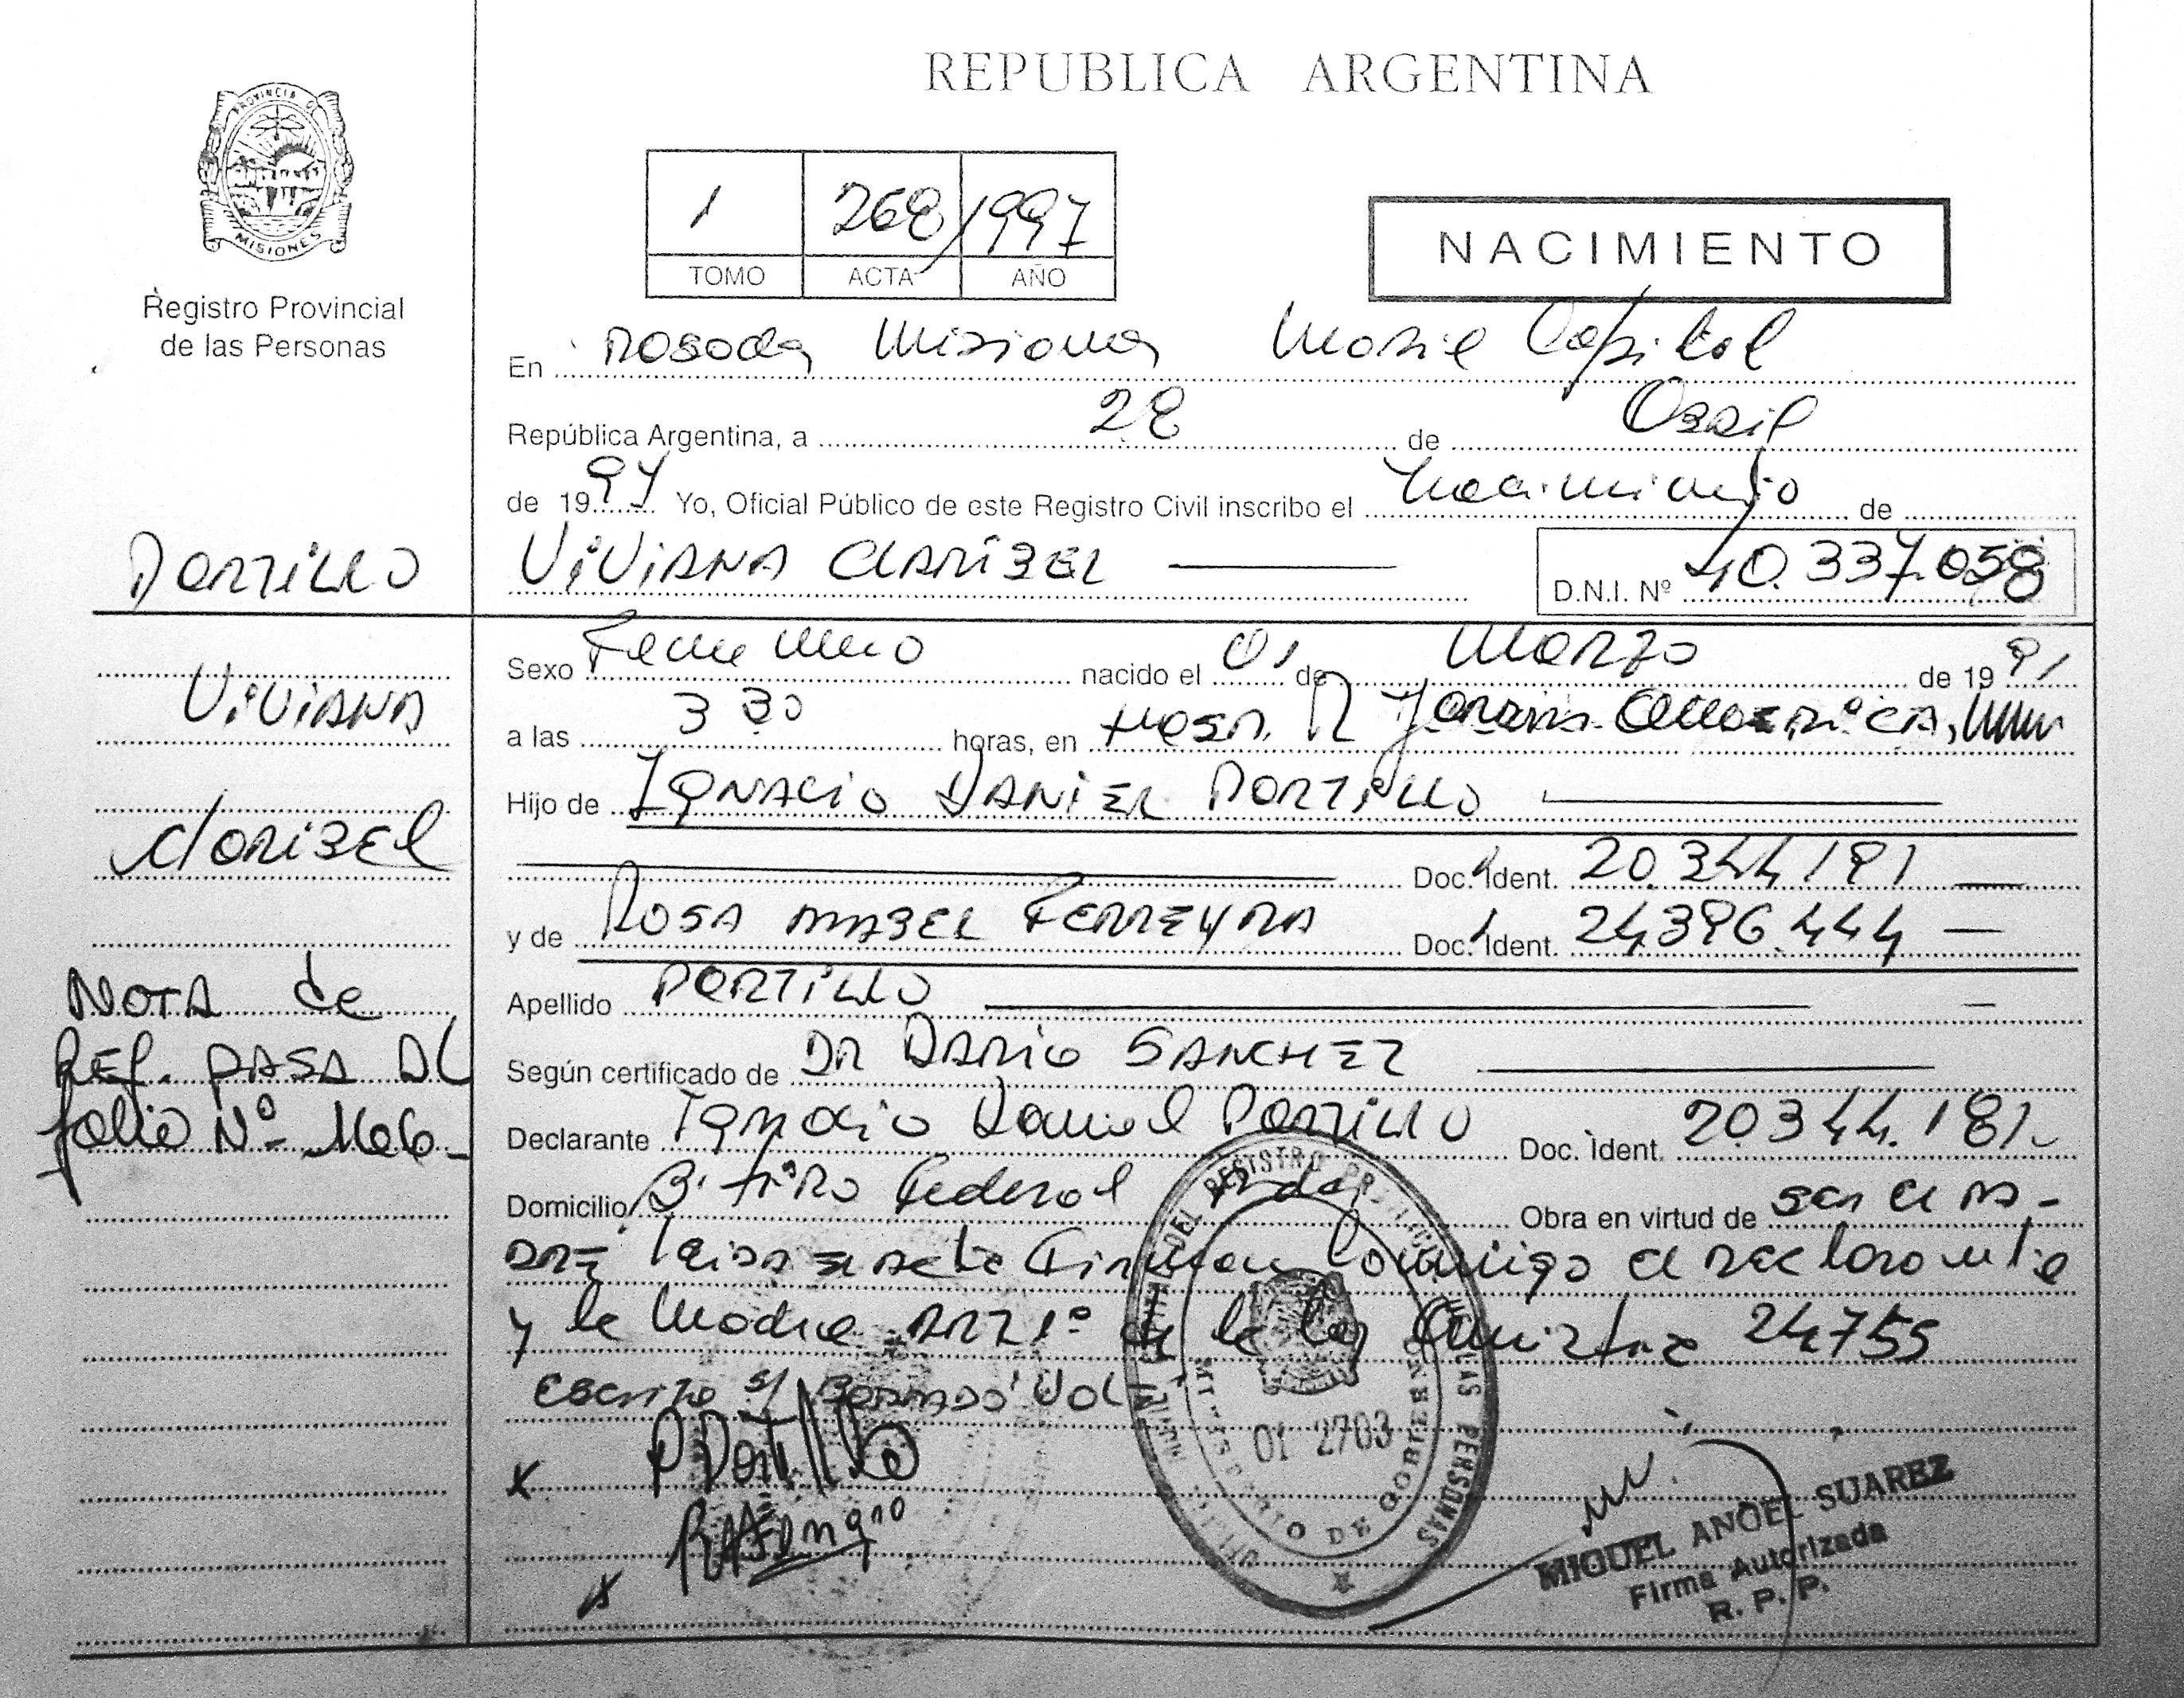 REPUBLICA ARGENTINA
PROVINCIA D
MISIONES
Registro Provincial
de las Personas
1 268 1997
TOMO ACTA AÑO
NACIMIENTO
En Posadas Misiones Capital
República Argentina, a 28 de Abril
de 1997 Yo, Oficial Público de este Registro Civil inscribo el Nacimiento de
PORTILLO
VIVIANA CLARIBEL D.N.I. Nº 40.337.058
Sexo Femenino nacido el 01 de Marzo de 1991
VIVIANA
a las 3 30 horas, en Hosp.
Hijo de IGNACIO DANIEL PORTILLO
Claribel
Doc. Ident. 20.344.191
y de ROSA MABEL FERREYRA Doc. Ident. 24.396.444
NOTA de
Apellido PORTILLO
REF. PASA AL
Según certificado de DR DARIO SANCHEZ
folio Nº 166
Declarante Ignacio Daniel Portillo Doc. Ident. 20.344.181
Domicilio Bº tiro Federal Pdas Obra en virtud de ser el pa-
dre leida el acta Firman Conmigo el declarante
y la Madre ART 1º de la ley 24755
escrito s/ Borrado
P Portillo
01 2703
MINISTERIO DE GOBIERNO
MIGUEL ANGEL SUAREZ
Firma Autorizada
R. P. P.